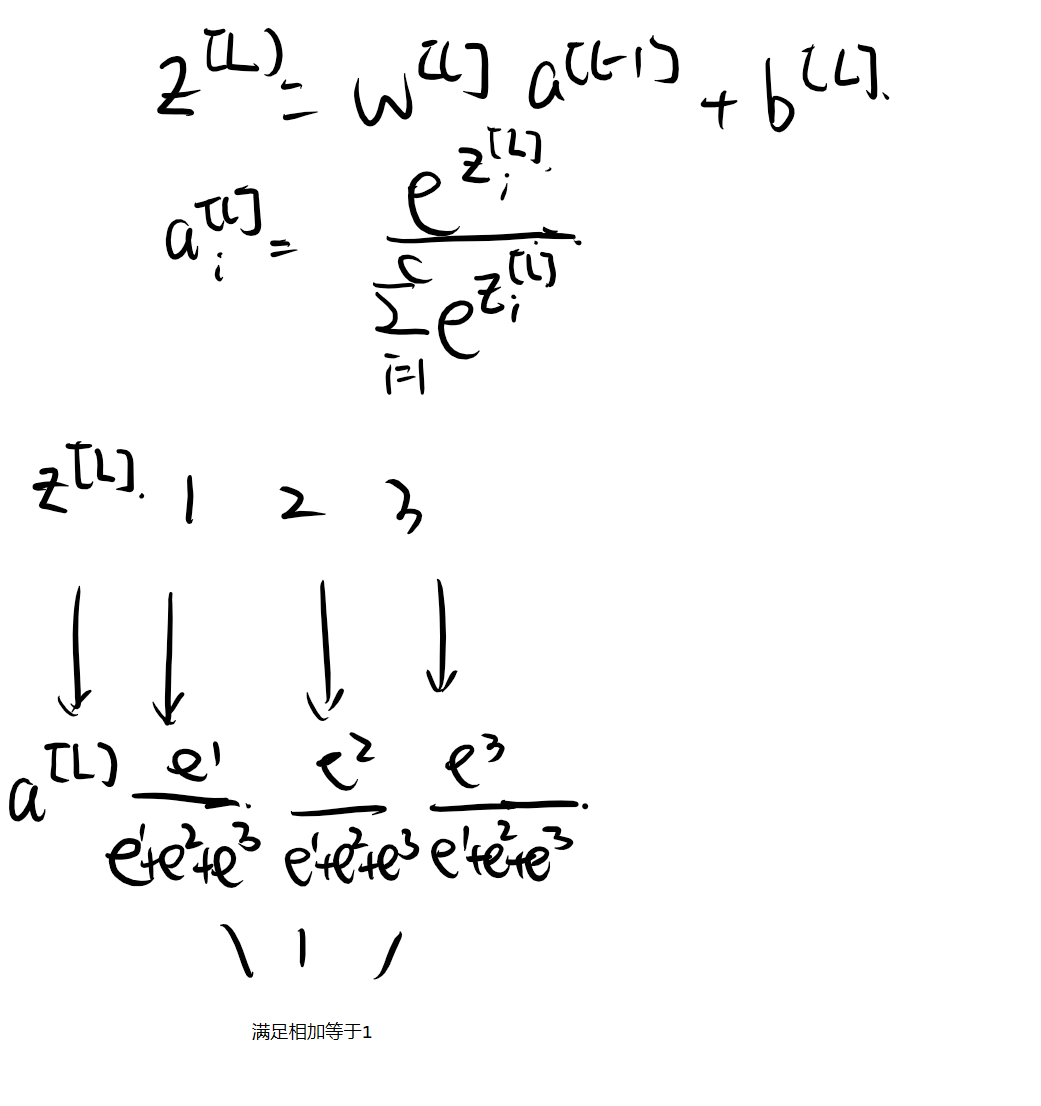 z^[L] = w^[L] a^[L-1] + b^[L].
a_i^[L] = e^{z_i^[L]} / ∑_{i=1}^{C} e^{z_i^[L]}
z^[L]. 1 2 3
↓ ↓ ↓ ↓
a^[L] e^1/(e^1+e^2+e^3) e^2/(e^1+e^2+e^3) e^3/(e^1+e^2+e^3)
\ | /
满足相加等于1